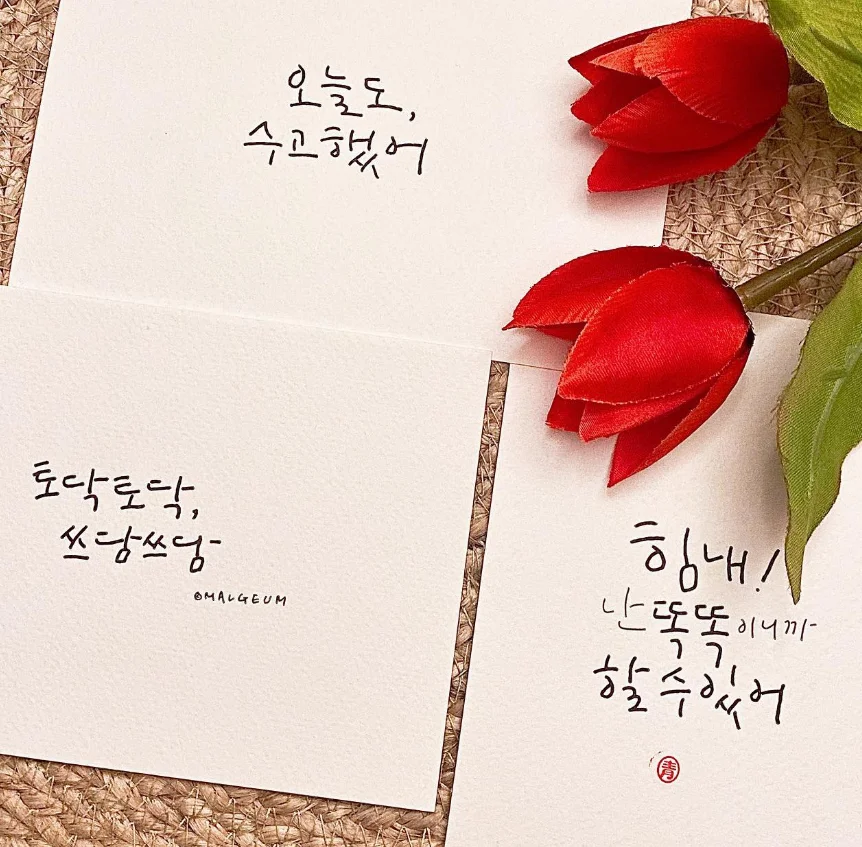 오늘도,
수고했어
토닥토닥,
쓰담쓰담
@MALGEUM
힘내!
난 똑똑이니까
할 수 있어
靑